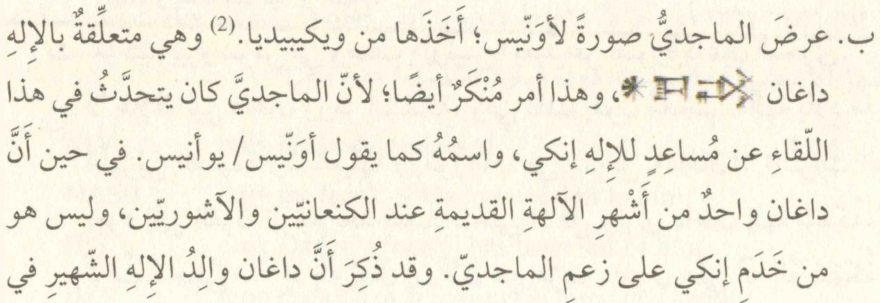 ب. عرضَ الماجديُّ صورةً لأوَنّيس؛ أَخَذَها من ويكيبيديا.(2) وهي متعلِّقةٌ بالإلهِ
داغان 𒀭𒁕𒃶، وهذا أمر مُنْكَرٌ أيضًا؛ لأنّ الماجديَّ كان يتحدَّثُ في هذا
اللّقاءِ عن مُساعِدٍ للإلهِ إنكي، واسمُهُ كما يقول أوَنّيس/ يوأنيس. في حين أَنَّ
داغان واحدٌ من أَشْهرِ الآلهةِ القديمةِ عند الكنعانيّين والآشوريّين، وليس هو
من خَدَمِ إنكي على زعمِ الماجديّ. وقد ذُكِرَ أَنَّ داغان والِدُ الإلهِ الشّهيرِ في